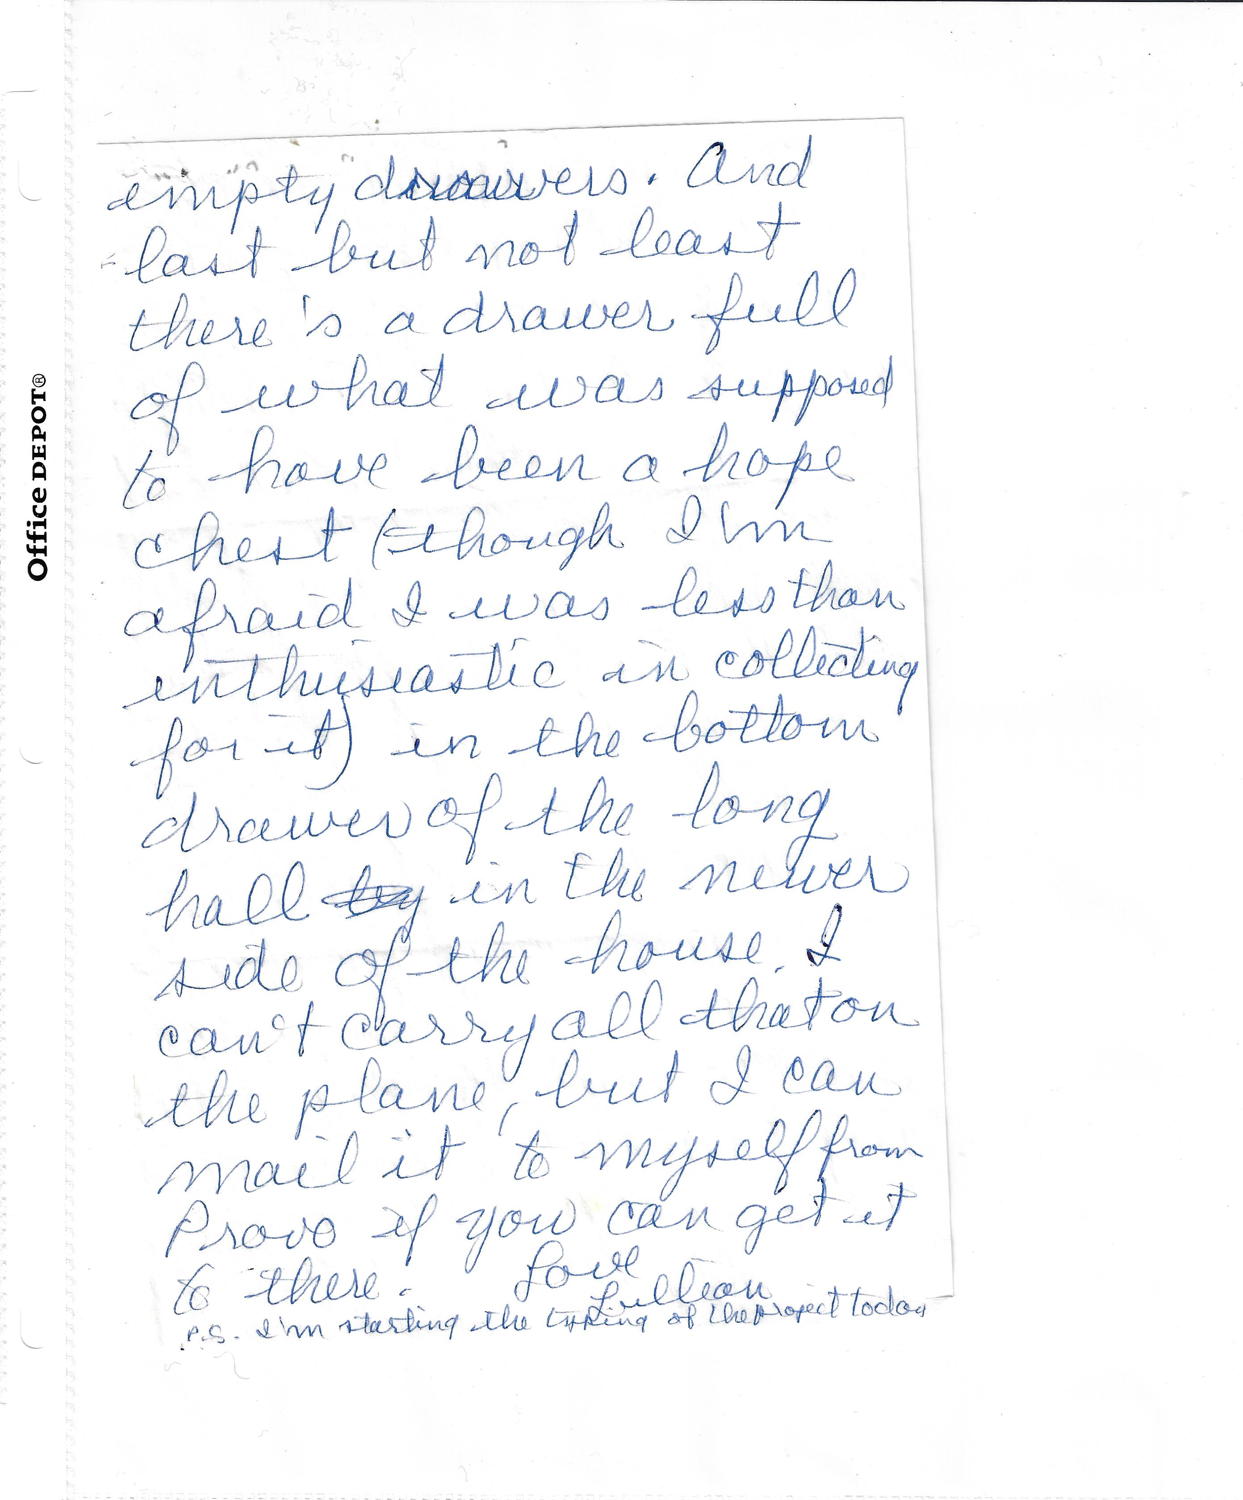 Office DEPOT®
empty drawers. And
last but not least
there's a drawer full
of what was supposed
to have been a hope
chest (though I'm
afraid I was less than
enthusiastic in collecting
for it) in the bottom
drawer of the long
hall by in the newer
side of the house. I
can't carry all that on
the plane, but I can
mail it to myself from
Provo if you can get it
to there. Love
Lillian
P.S. I'm starting the typing of the project today